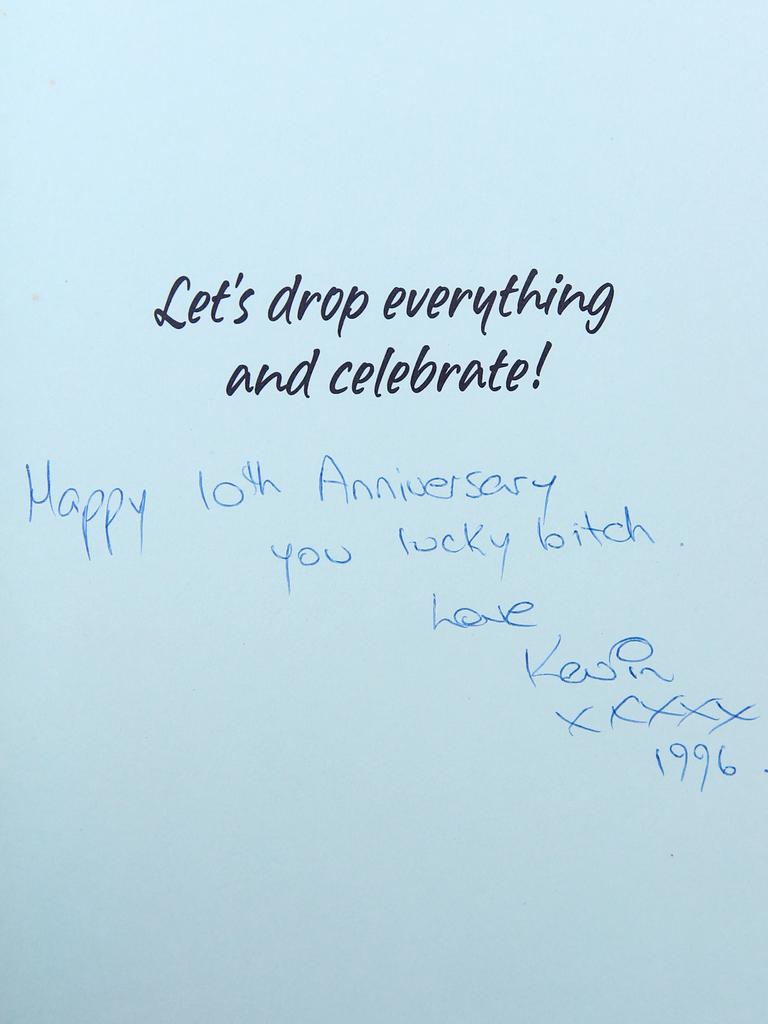 Let's drop everything
and celebrate!
Happy 10th Anniversary
you lucky bitch.
Love
Kevin
xxxxx
1996.